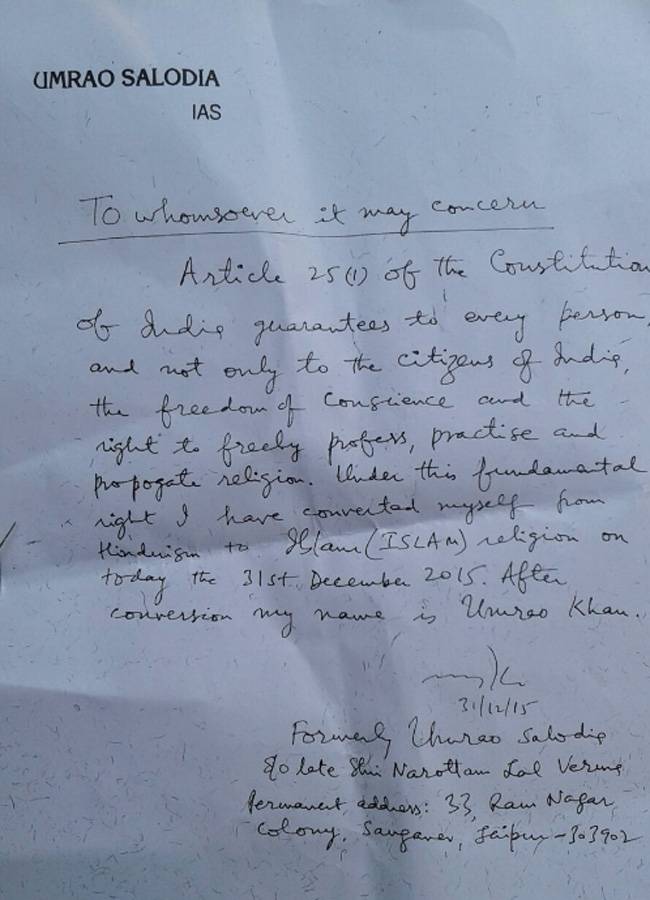 UMRAO SALODIA
IAS
To whomsoever it may concern
Article 25(1) of the Constitution
of India guarantees to every person,
and not only to the citizens of India,
the freedom of conscience and the
right to freely profess, practise and
propogate religion. Under this fundamental
right I have converted myself from
Hinduism to Islam (ISLAM) religion on
today the 31st December 2015. After
conversion my name is Umrao Khan.
31/12/15
Formerly Umrao Salodia
S/o late Shri Narottam Lal Verma
Permanent address: 33, Ram Nagar
Colony, Sanganer, Jaipur-303902